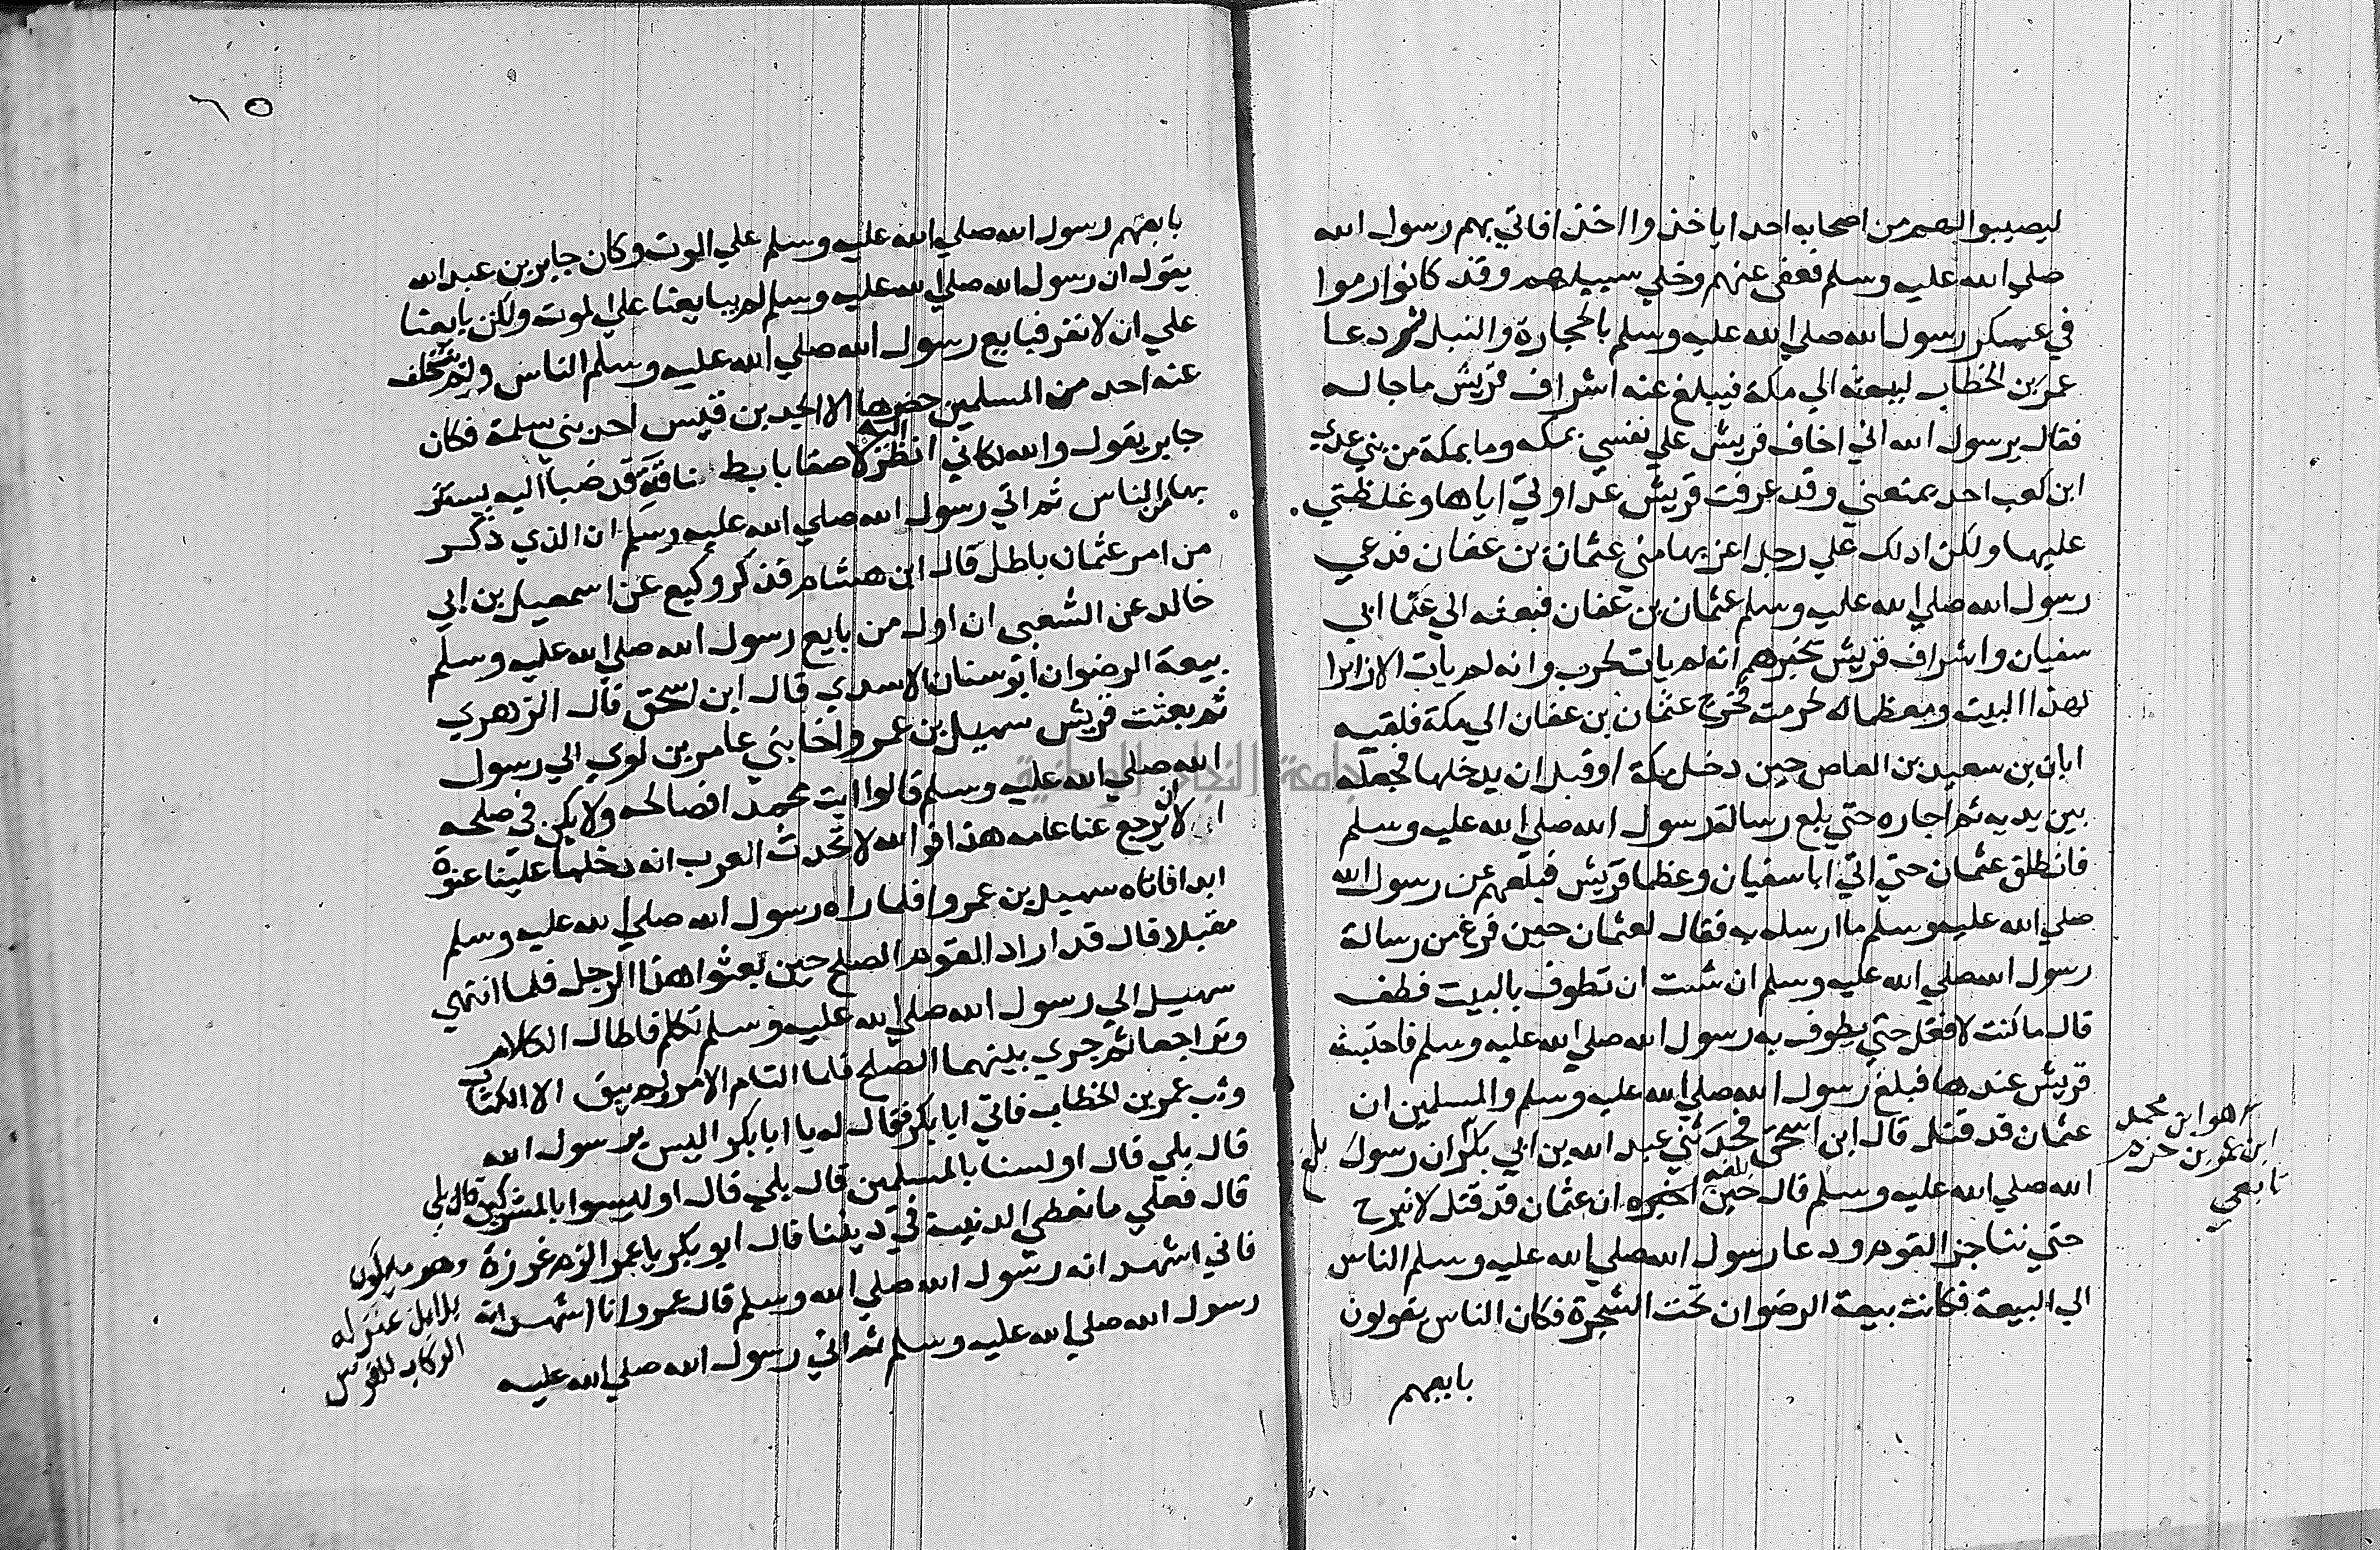 ليصيبوا لهم من اصحابه احدا ياخذوا اخذا فاتي بهم رسول الله
صلي الله عليه وسلم فعفى عنهم وخلي سبيلهم وقد كانوا رموا
في عسكر رسول الله صلي الله عليه وسلم بالحجارة والنبل ثم دعا
عمر بن الخطاب ليبعثه الي مكة فيبلغ عنه اشراف قريش ما جا له
فقال يرسول الله اني اخاف قريش علي نفسي بمكه وما بمكة من بني عدي
ابن كعب احد يمنعني وقد عرفت قريش عداوتي اياها وغلظتي
عليها ولكن ادلك علي رجل اعز بها مني عثمان بن عفان فدعي
رسول الله صلي الله عليه وسلم عثمان بن عفان فبعثه الي ابي
سفيان واشراف قريش يخبرهم انه لم يات لحرب وانه لم يات الا زايرا
لهذا البيت ومعظما له لحرمته فخرج عثمان بن عفان الي مكة فلقيه
ابان بن سعيد بن العاص حين دخل مكة او قبل ان يدخلها فجعله
بين يديه ثم اجاره حتي بلغ رسالة رسول الله صلي الله عليه وسلم
فانطلق عثمان حتي اتي ابا سفيان وعظما قريش فبلغهم عن رسول الله
صلي الله عليه وسلم ما ارسله به فقال لعثمان حين فرغ من رسالة
رسول الله صلي الله عليه وسلم ان شئت ان تطوف بالبيت فطف
قال ما كنت لافعل حتي يطوف به رسول الله صلي الله عليه وسلم فاحتبسته
قريش عندها فبلغ رسول الله صلي الله عليه وسلم والمسلمين ان
عثمان قد قتل قال ابن اسحق فحدثني عبد الله بن ابي بكر ان رسول
الله صلي الله عليه وسلم قال حين بلغه ان عثمان قد قتل لا نبرح
حتي نناجز القوم ودعا رسول الله صلي الله عليه وسلم الناس
الي البيعة فكانت بيعة الرضوان تحت الشجرة فكان الناس يقولون
بايعهم
هو ابن محمد
ابن عمرو بن حزم
تابعي
بلغ
٦٥
بايعهم رسول الله صلي الله عليه وسلم علي الموت وكان جابر بن عبد الله
يقول ان رسول الله صلي الله عليه وسلم لم يبايعنا علي الموت ولكن بايعنا
علي ان لا نفر فبايع رسول الله صلي الله عليه وسلم الناس ولم يتخلف
عنه احد من المسلمين حضرها الا الجد بن قيس احد بني سلمة فكان
جابر يقول والله لكاني انظر اليه لاصقا بابط ناقته قد ضبا اليه يستتر
بها من الناس ثم اتي رسول الله صلي الله عليه وسلم ان الذي ذكر
من امر عثمان باطل قال ابن هشام فذكر وكيع عن اسمعيل بن ابي
خالد عن الشعبي ان اول من بايع رسول الله صلي الله عليه وسلم
بيعة الرضوان ابو سنان الاسدي قال ابن اسحق قال الزهري
ثم بعثت قريش سهيل بن عمرو اخا بني عامر بن لوي الي رسول
الله صلي الله عليه وسلم قالوا ايت محمدا فصالحه ولا يكن في صلحه
الا ان يرجع عنا عامه هذا فوالله لا تحدث العرب انه دخلها علينا عنوة
ابدا فاتاه سهيل بن عمروا فلما راه رسول الله صلي الله عليه وسلم
مقبلا قال قد اراد القوم الصلح حين بعثوا هذا الرجل فلما انتهي
سهيل الي رسول الله صلي الله عليه وسلم تكلم فاطال الكلام
وتراجعا ثم جري بينهما الصلح فلما التام الامر ولم يبق الا الكتاب
وثب عمر بن الخطاب فاتي ابا بكر فقال له يا ابا بكر اليس برسول الله
قال بلي قال اولسنا بالمسلمين قال بلي قال اوليسوا بالمشركين قال بلي
قال فعلي ما نعطي الدنية في ديننا قال ابو بكر يا عمر الزم غرزة
فاني اشهد انه رسول الله صلي الله وسلم قال عمر وانا اشهد انه
رسول الله صلي الله عليه وسلم ثم اتي رسول الله صلي الله عليه
وهو ما يكون
للابل بمنزلة
الركاب للفرس
جامعة النجاح الوطنية